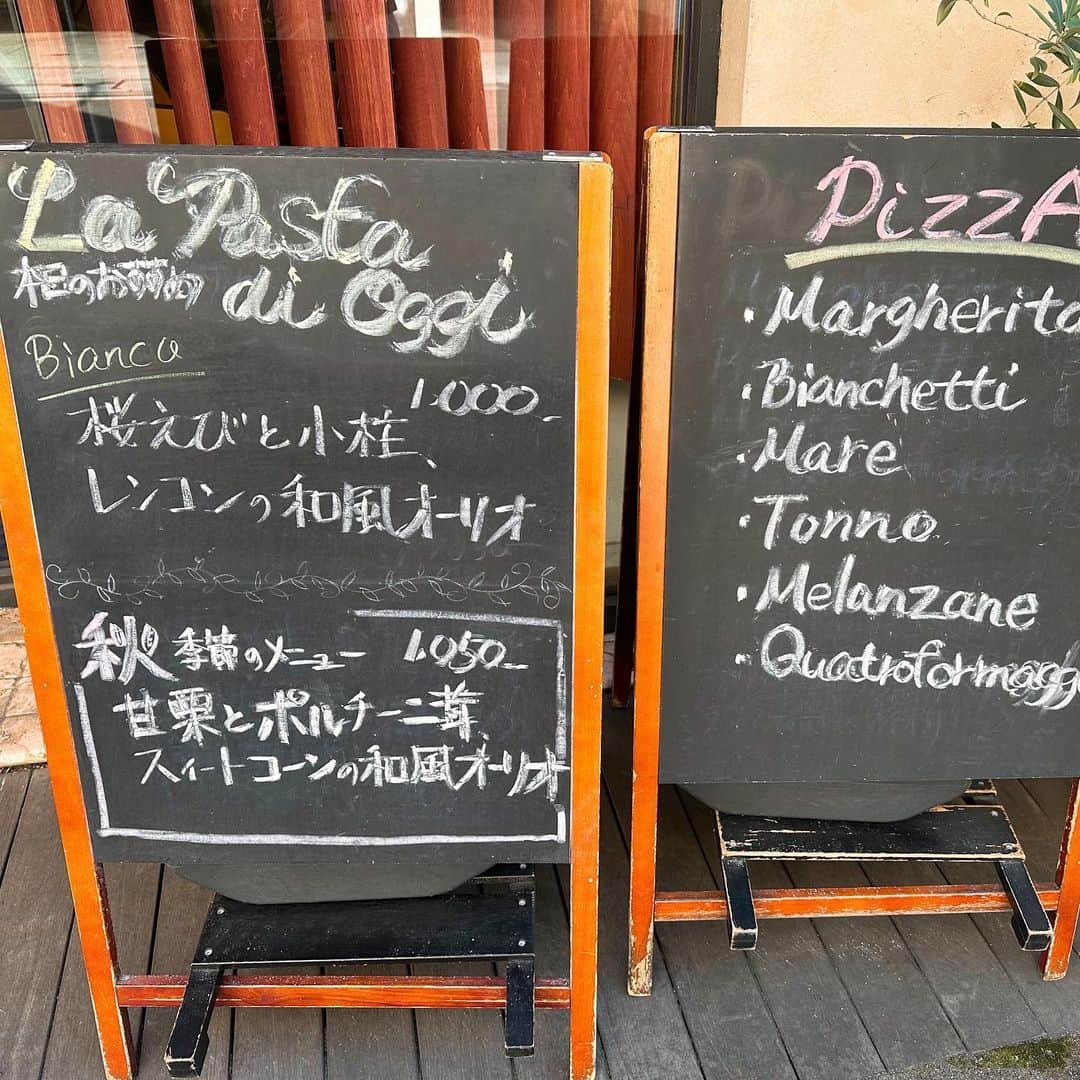 La Pasta
di Oggi
本日のお薦め
Bianco
1.000-
桜えびと小柱、
レンコンの和風オーリオ
秋 季節のメニュー 1.050-
甘栗とポルチーニ茸、
スィートコーンの和風オーリオ
PizzA
・Margherita
・Bianchetti
・Mare
・Tonno
・Melanzane
・Quatroformagg